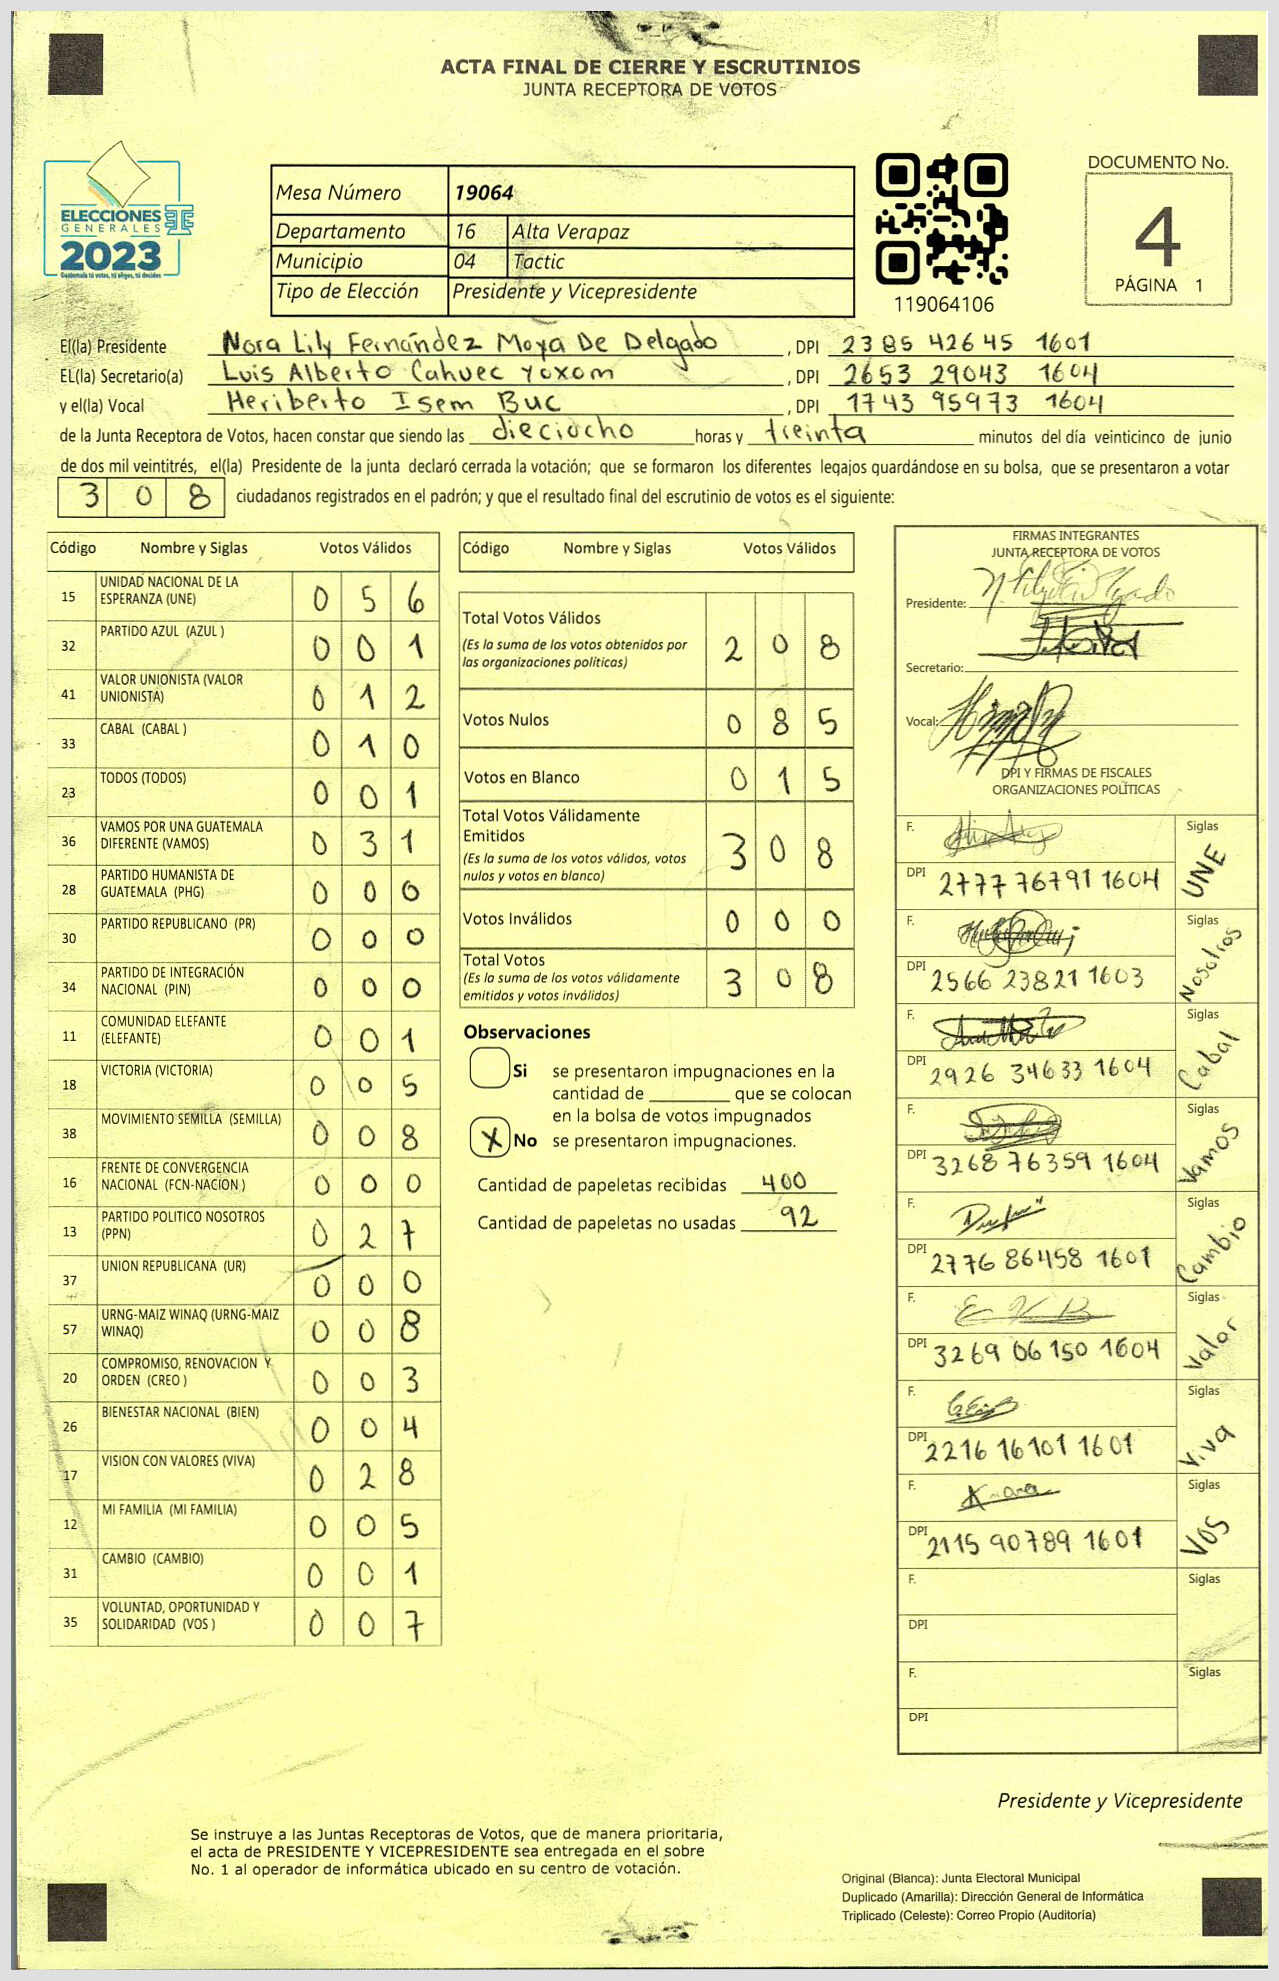 ACTA FINAL DE CIERRE Y ESCRUTINIOS
JUNTA RECEPTORA DE VOTOS
ELECCIONES
GENERALES
2023
Guatemala tú votas, tú eliges, tú decides
Mesa Número 19064
Departamento 16 Alta Verapaz
Municipio 04 Tactic
Tipo de Elección Presidente y Vicepresidente
119064106
DOCUMENTO No.
4
PÁGINA 1
El(la) Presidente Nora Lily Fernández Moya De Delgado , DPI 2385 42645 1601
EL(la) Secretario(a) Luis Alberto Cahuec Yoxom , DPI 2653 29043 1604
y el(la) Vocal Heriberto Isem Buc , DPI 1743 95973 1604
de la Junta Receptora de Votos, hacen constar que siendo las dieciocho horas y treinta minutos del día veinticinco de junio
de dos mil veintitrés, el(la) Presidente de la junta declaró cerrada la votación; que se formaron los diferentes legajos guardándose en su bolsa, que se presentaron a votar
308 ciudadanos registrados en el padrón; y que el resultado final del escrutinio de votos es el siguiente:
Código Nombre y Siglas Votos Válidos
15 UNIDAD NACIONAL DE LA ESPERANZA (UNE) 0 5 6
32 PARTIDO AZUL (AZUL ) 0 0 1
41 VALOR UNIONISTA (VALOR UNIONISTA) 0 1 2
33 CABAL (CABAL ) 0 1 0
23 TODOS (TODOS) 0 0 1
36 VAMOS POR UNA GUATEMALA DIFERENTE (VAMOS) 0 3 1
28 PARTIDO HUMANISTA DE GUATEMALA (PHG) 0 0 0
30 PARTIDO REPUBLICANO (PR) 0 0 0
34 PARTIDO DE INTEGRACIÓN NACIONAL (PIN) 0 0 0
11 COMUNIDAD ELEFANTE (ELEFANTE) 0 0 1
18 VICTORIA (VICTORIA) 0 0 5
38 MOVIMIENTO SEMILLA (SEMILLA) 0 0 8
16 FRENTE DE CONVERGENCIA NACIONAL (FCN-NACION ) 0 0 0
13 PARTIDO POLITICO NOSOTROS (PPN) 0 2 7
37 UNION REPUBLICANA (UR) 0 0 0
57 URNG-MAIZ WINAQ (URNG-MAIZ WINAQ) 0 0 8
20 COMPROMISO, RENOVACION Y ORDEN (CREO ) 0 0 3
26 BIENESTAR NACIONAL (BIEN) 0 0 4
17 VISION CON VALORES (VIVA) 0 2 8
12 MI FAMILIA (MI FAMILIA) 0 0 5
31 CAMBIO (CAMBIO) 0 0 1
35 VOLUNTAD, OPORTUNIDAD Y SOLIDARIDAD (VOS ) 0 0 7
Código Nombre y Siglas Votos Válidos
Total Votos Válidos 2 0 8
(Es la suma de los votos obtenidos por
las organizaciones políticas)
Votos Nulos 0 8 5
Votos en Blanco 0 1 5
Total Votos Válidamente
Emitidos 3 0 8
(Es la suma de los votos válidos, votos
nulos y votos en blanco)
Votos Inválidos 0 0 0
Total Votos 3 0 8
(Es la suma de los votos válidamente
emitidos y votos inválidos)
Observaciones
Si se presentaron impugnaciones en la
cantidad de ________ que se colocan
en la bolsa de votos impugnados
X No se presentaron impugnaciones.
Cantidad de papeletas recibidas 400
Cantidad de papeletas no usadas 92
FIRMAS INTEGRANTES
JUNTA RECEPTORA DE VOTOS
Presidente:
Secretario:
Vocal:
DPI Y FIRMAS DE FISCALES
ORGANIZACIONES POLÍTICAS
F. Siglas UNE
DPI 2777 76791 1604
F. Siglas Nosotros
DPI 2566 23821 1603
F. Siglas Cabal
DPI 2926 34633 1604
F. Siglas Vamos
DPI 3268 76359 1604
F. Siglas Cambio
DPI 2776 86458 1601
F. Siglas Valor
DPI 3269 06150 1604
F. Siglas Viva
DPI 2216 16101 1601
F. Siglas VOS
DPI 2115 90789 1601
F. Siglas
DPI
F. Siglas
DPI
Presidente y Vicepresidente
Se instruye a las Juntas Receptoras de Votos, que de manera prioritaria,
el acta de PRESIDENTE Y VICEPRESIDENTE sea entregada en el sobre
No. 1 al operador de informática ubicado en su centro de votación.
Original (Blanca): Junta Electoral Municipal
Duplicado (Amarilla): Dirección General de Informática
Triplicado (Celeste): Correo Propio (Auditoría)